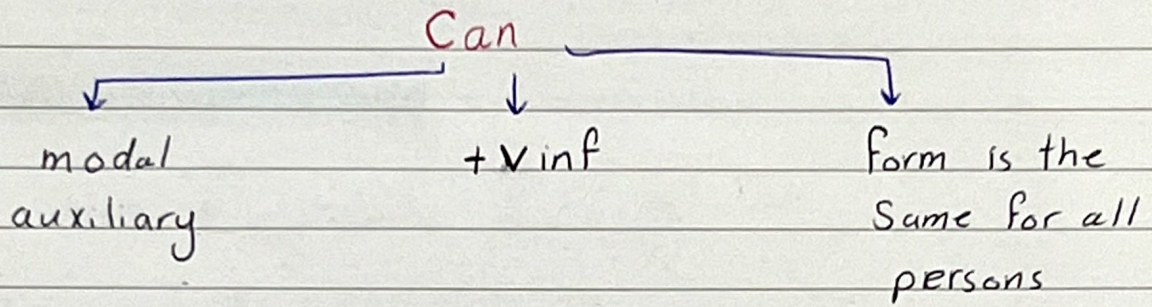 Can
modal
auxiliary
+ V inf
form is the
Same for all
persons